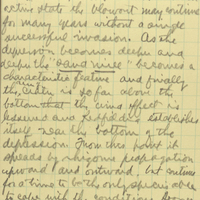 extra state the blowout may continue
for many years without a single
successful invasion. As the
depression becomes deeper and
deeper the "sand mice" becomes a
characteristic feature and finally
the is so far above the
bottom that the wind effect is
lessened and Redfieldia establishes
itself near the bottom of the
depression. From this point it
spreads by rhizome propagation
upward and outward, but continues
for a time to be the only species able
to cope with the conditions